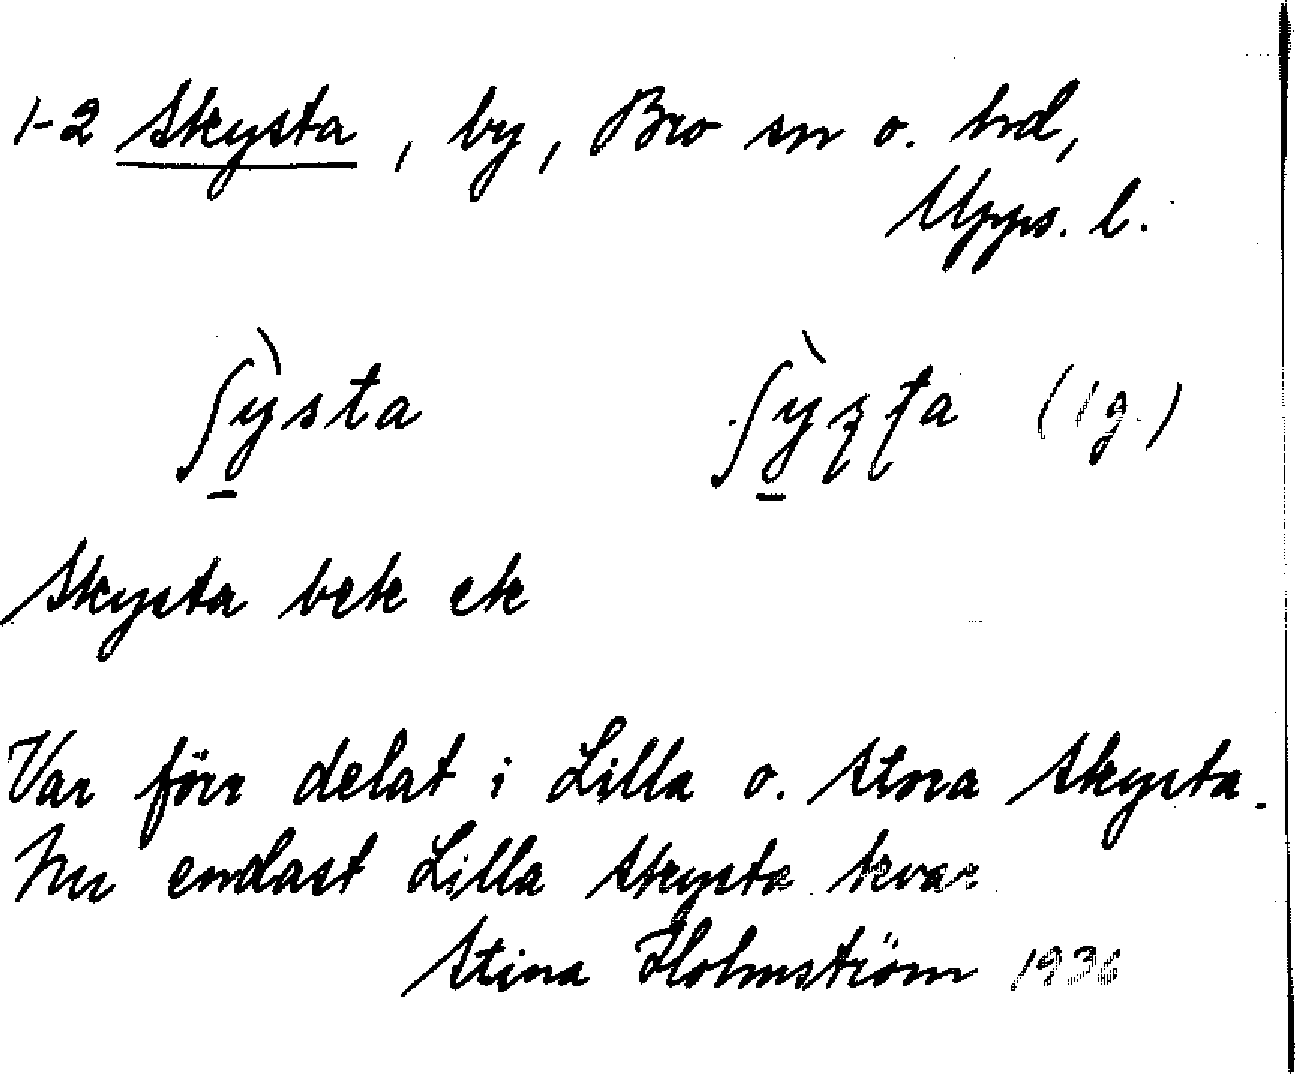 1-2 Skysta, by, Bro sn o. hd,
Upps. l.
ʃỳsta ʃỳʂʈa (1g.)
Skysta bek ek
Var förr delat i Lilla o. Stora Skysta.
Nu endast Lilla Skysta kvar
Stina Holmström 1936